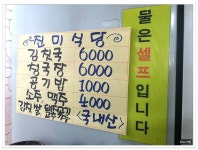 진미식당
김치국 6000
청국장 6000
공기밥 1000
소주 맥주 4000
김치 쌀 <국내산>
물은 셀프입니다